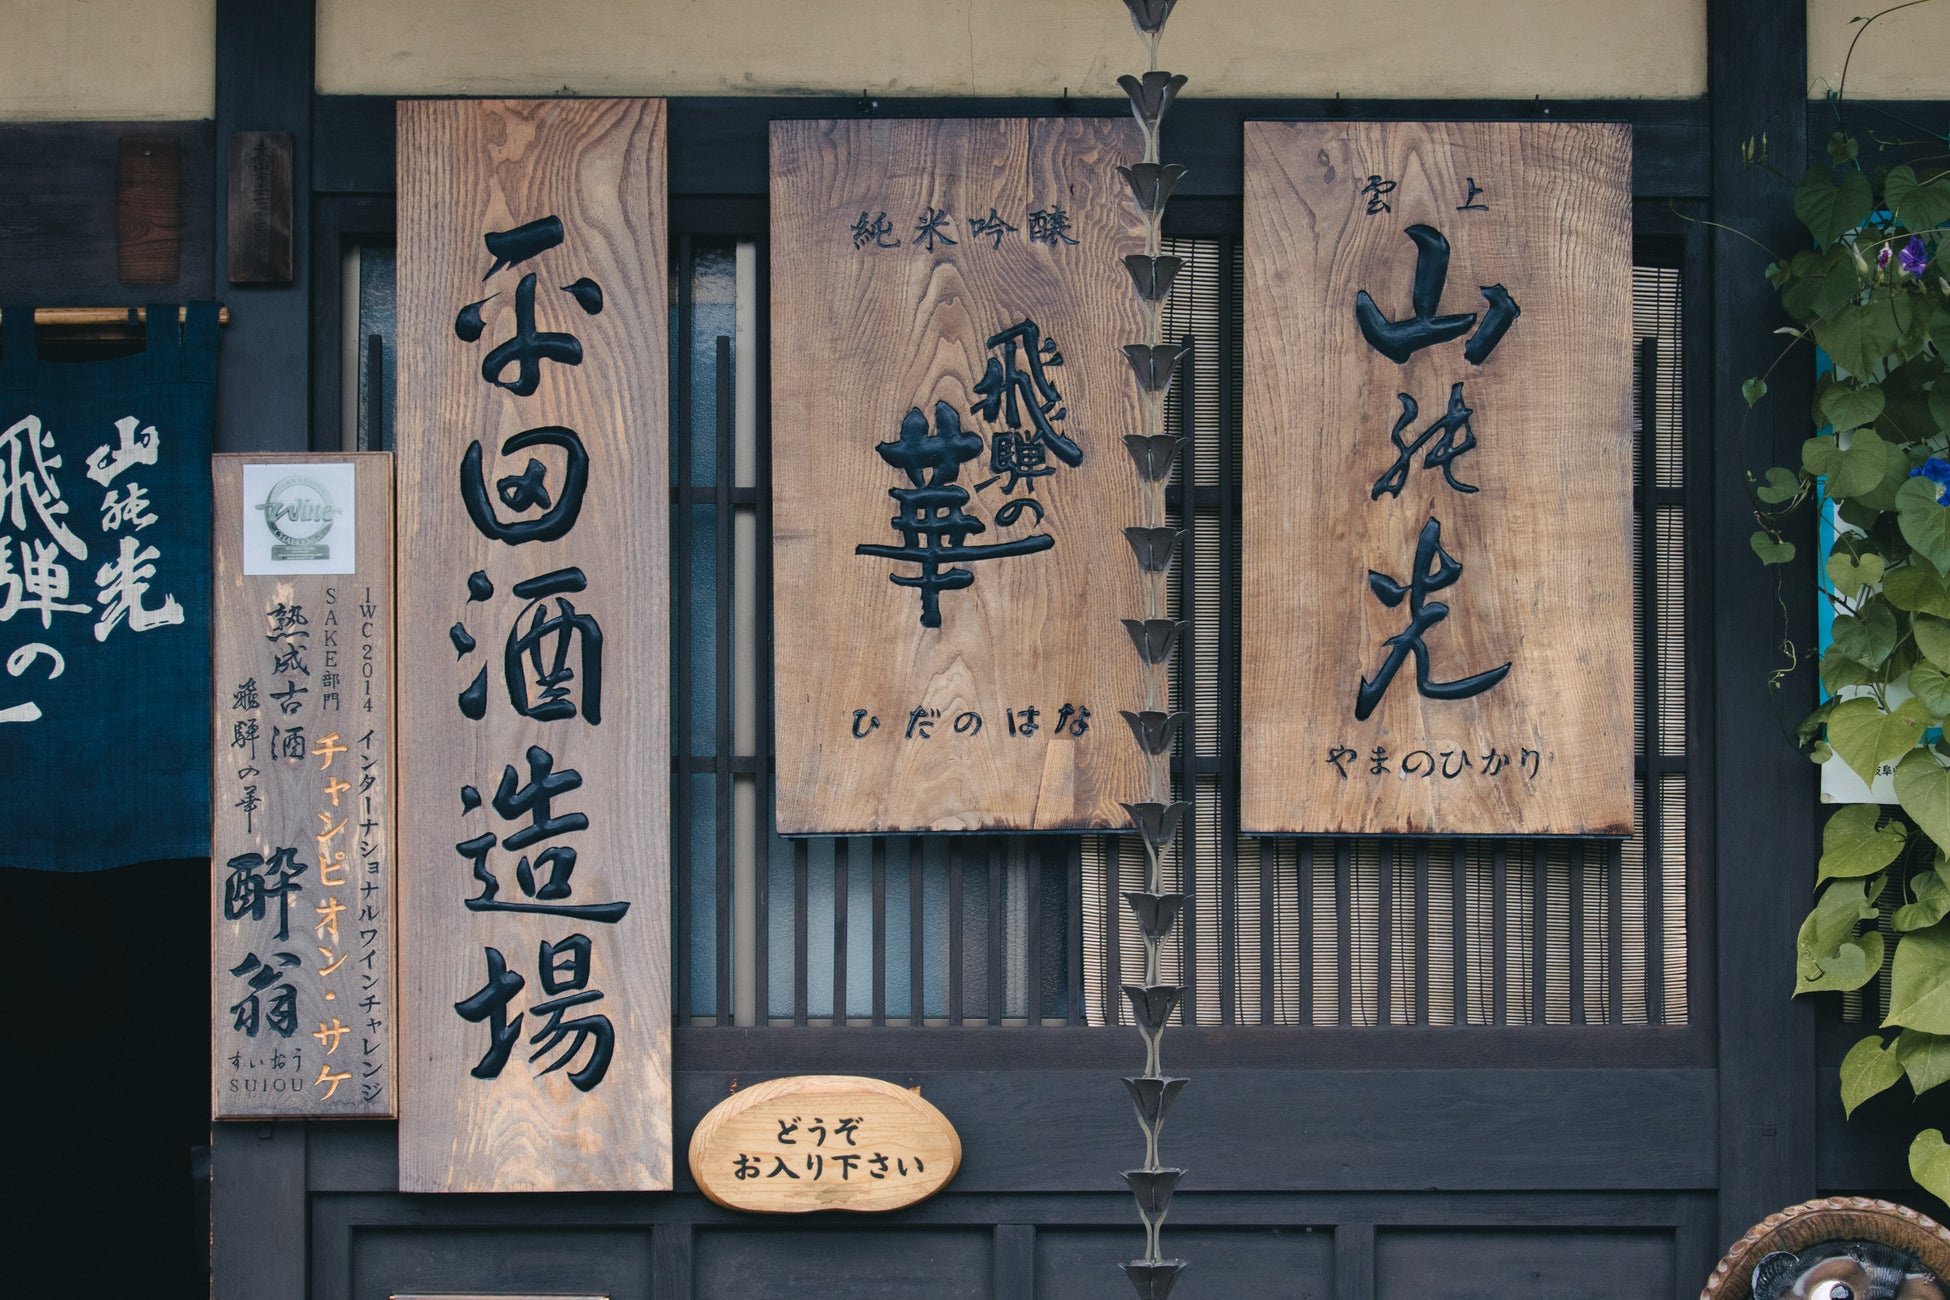 山の光
飛騨の
平田酒造場
純米吟醸
飛騨の
華
ひだのはな
雲上
山の光
やまのひかり
IWC2014 インターナショナルワインチャレンジ
SAKE部門 チャンピオン・サケ
熟成古酒
飛騨の華
酔翁
すいおう
SUIOU
Wine
CHALLENGE
どうぞ
お入り下さい